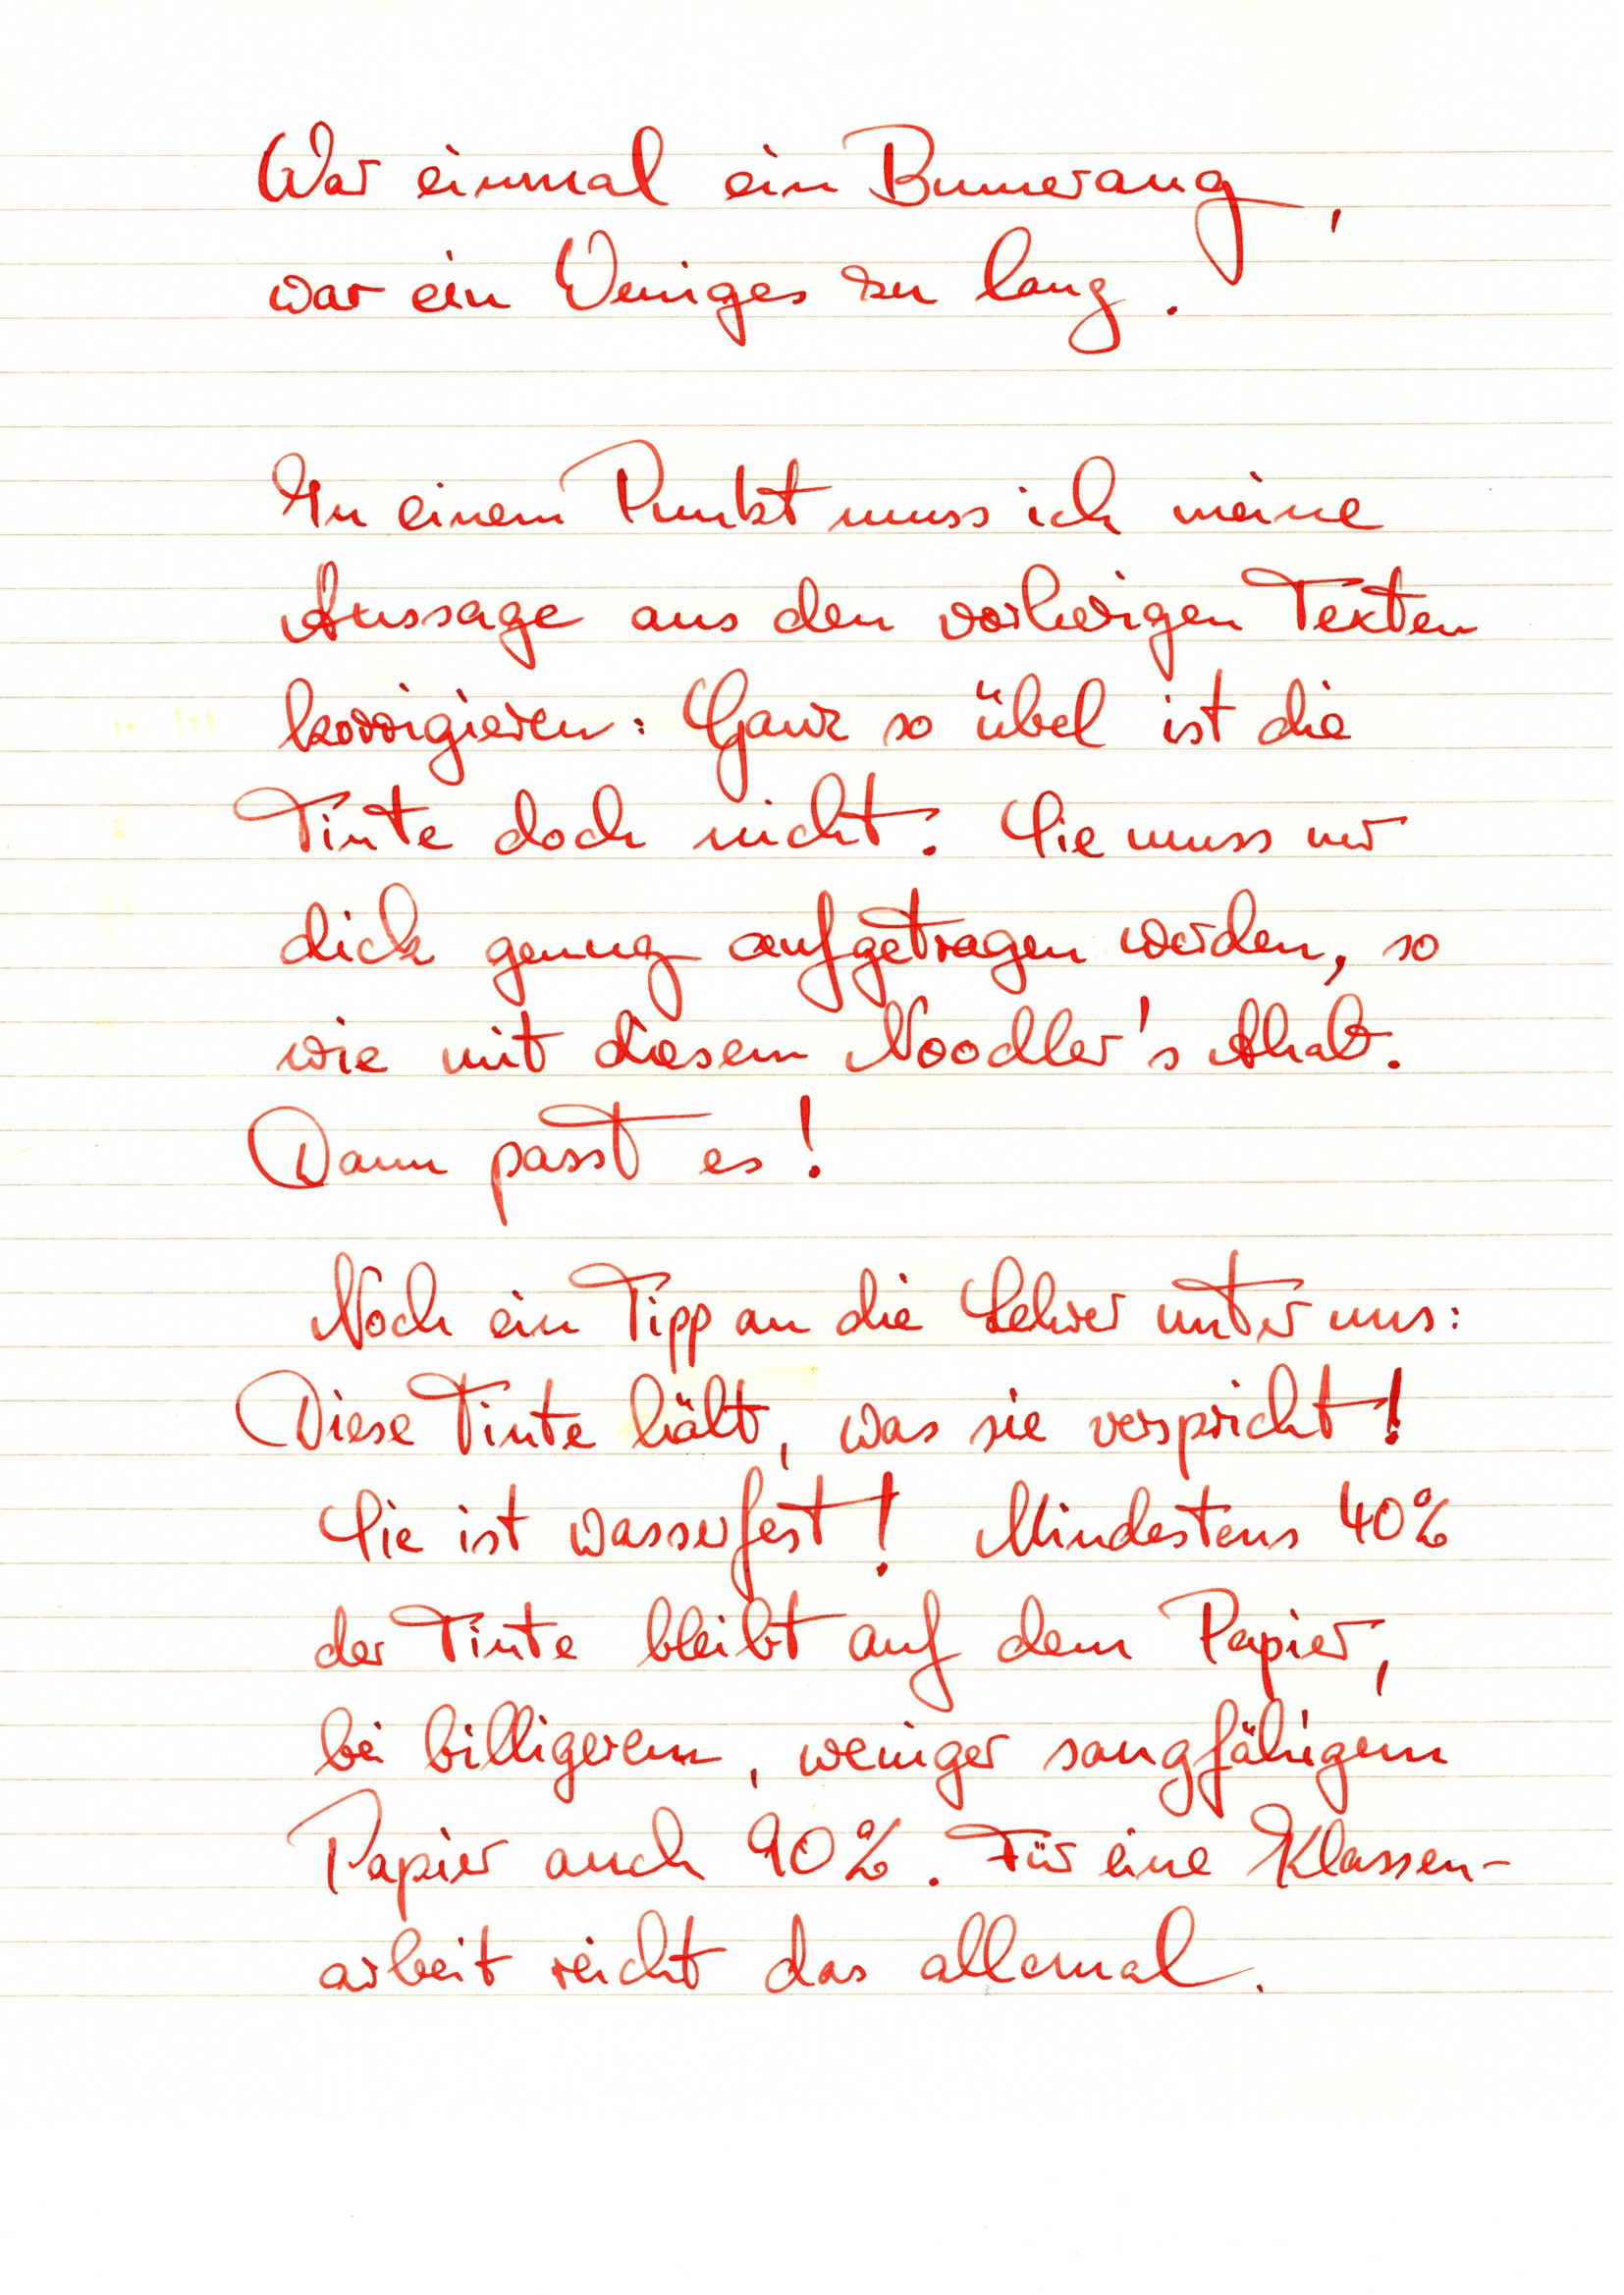 War einmal ein Bumerang,
war ein Weniges zu lang.
In einem Punkt muss ich meine
Aussage aus den vorherigen Texten
korrigieren: Ganz so übel ist die
Tinte doch nicht. Sie muss nur
dick genug aufgetragen werden, so
wie mit diesem Noodler's Ahab.
Dann passt es!
Noch ein Tipp an die Lehrer unter uns:
Diese Tinte hält, was sie verspricht!
Sie ist wasserfest! Mindestens 40%
der Tinte bleibt auf dem Papier,
bei billigerem, weniger saugfähigem
Papier auch 90%. Für eine Klassen-
arbeit reicht das allemal.